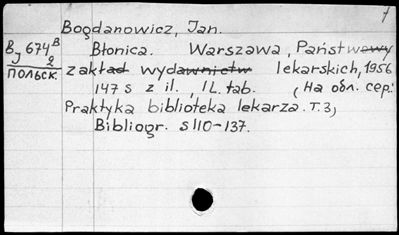 1
Bogdanowicz, Jan.
B 674 B
J 2
польск.
Błonica. Warszawa, Państwowy
zakład wydawnictw lekarskich, 1956
147 s z il., 1 L. tab. (На обл. сер:
Praktyka biblioteka lekarza. T. 3)
Bibliogr. s 110-137.